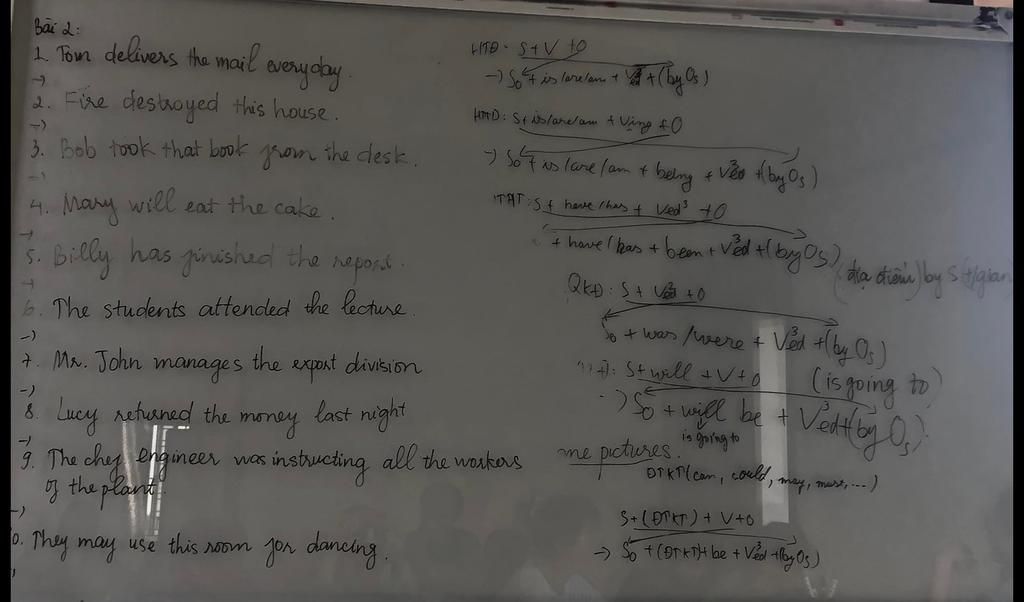 Bài 2:
1. Tom delivers the mail everyday.
→
2. Fire destroyed this house.
→
3. Bob took that book from the desk.
→
4. Mary will eat the cake.
→
5. Billy has finished the report.
→
6. The students attended the lecture.
→
7. Mr. John manages the export division
→
8. Lucy returned the money last night
→
9. The chef engineer was instructing all the workers
of the plant.
→
0. They may use this room for dancing.
HTĐ: S + V + O
→ So + is/are/am + + (by Os)
HTD: S + is/are/am + Ving + O
→ So + is/are/am + being + V3ed + (by Os)
S + have/has + Ved3 + O
+ have/has + been + V3ed + (by Os)
(địa điểm) by S t/gian
QKĐ: S + V3ed + O
So + was/were + V3ed + (by Os)
S + will + V + O (is going to)
→ So + will be + V3ed + (by Os)
is going to
me pictures.
ĐTKT (can, could, may, must, ...)
S + (ĐTKT) + V + O
→ So + (ĐTKT) + be + V3ed + (by Os)